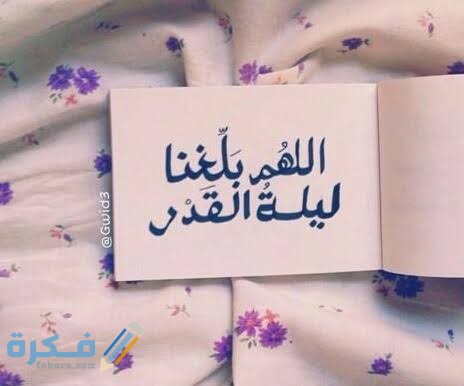 اللهُم بَلِّغنا
ليلةُ القَدْر
@Gwid3
فكرة
fekera.com